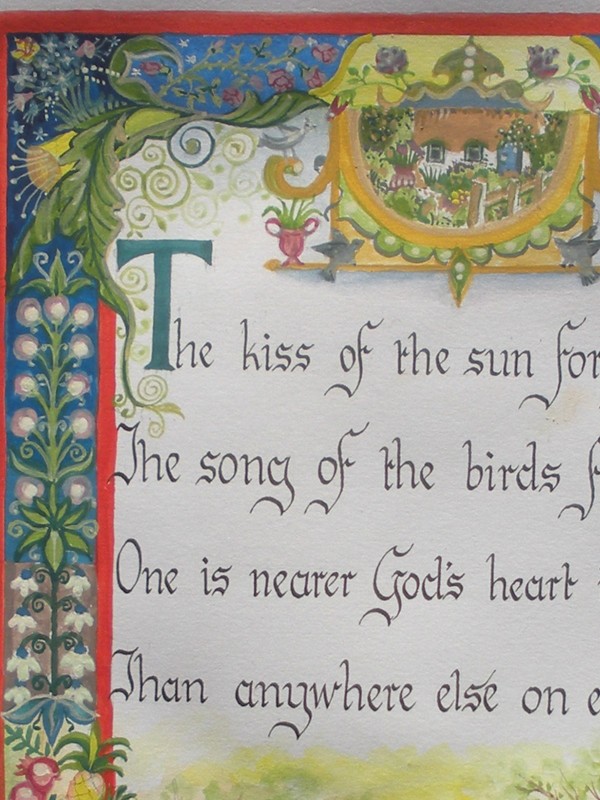 The kiss of the sun for
The song of the birds f
One is nearer God's heart
Than anywhere else on e